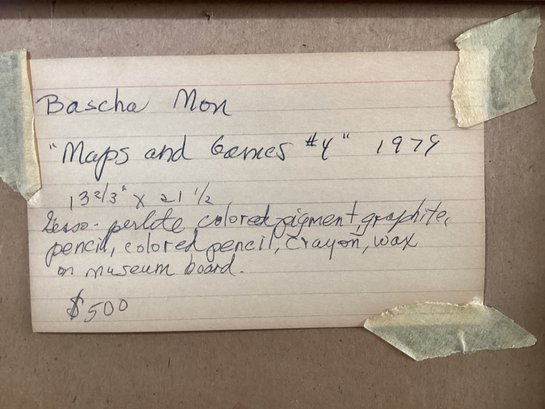 Bascha Mon
"Maps and Games #4" 1979
13 2/3" X 21 1/2
Gesso - perlite, colored pigment, graphite,
pencil, colored pencil, crayon, wax
on museum board.
$500